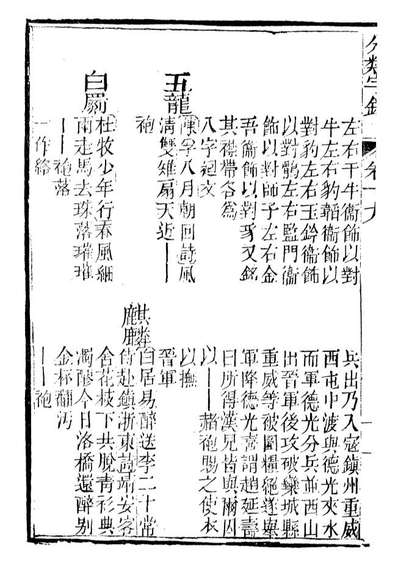 分類字錦 卷十九
左右千牛衞飾以對
牛左右豹韜衞飾以
對豹左右玉鈐衞飾
以對鶻左右監門衞
飾以對師子左右金
吾衞飾以對豸又銘
其襟帶各為
八字廻文
五龍
陳孚八月朝回詩風
清雙雉扇天近——
袍
白罽
杜牧少年行春風細
雨走馬去珠落璀璀
——袍落
一作絡
兵出乃入寇鎮州重威
西屯中渡與德光夾水
而軍德光分兵並西山
出晉軍後攻破欒城縣
重威等被圍糧絕遂舉
軍降德光喜謂趙延壽
曰所得漢兒皆與爾因
以——赭袍賜之使衣
以撫
晉軍
麒麟
白居易醉送李二十常
侍赴鎮浙東詩靖安客
舍花枝下共脫青衫典
濁醪今日洛橋還醉別
金杯翻汚
——袍